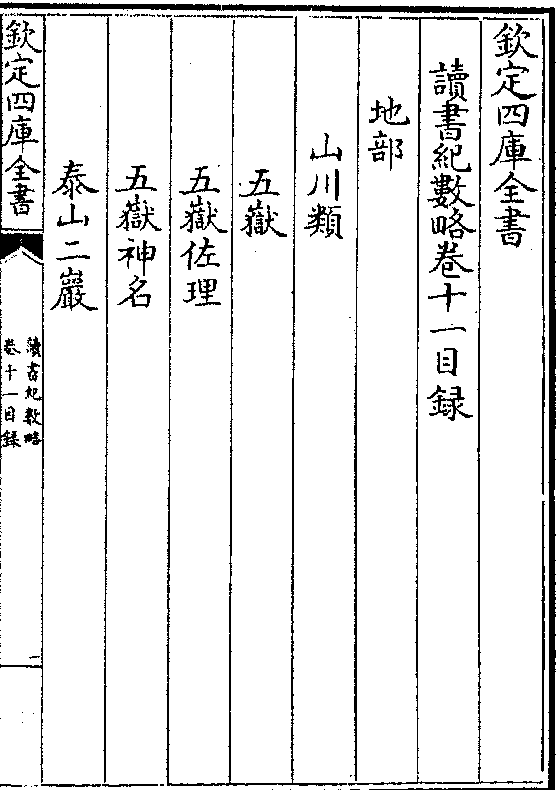 欽定四庫全書
讀書紀數略卷十一目録
地部
山川類
五嶽
五嶽佐理
五嶽神名
泰山二巖
欽定四庫全書
讀書紀數略
卷十一目録
一